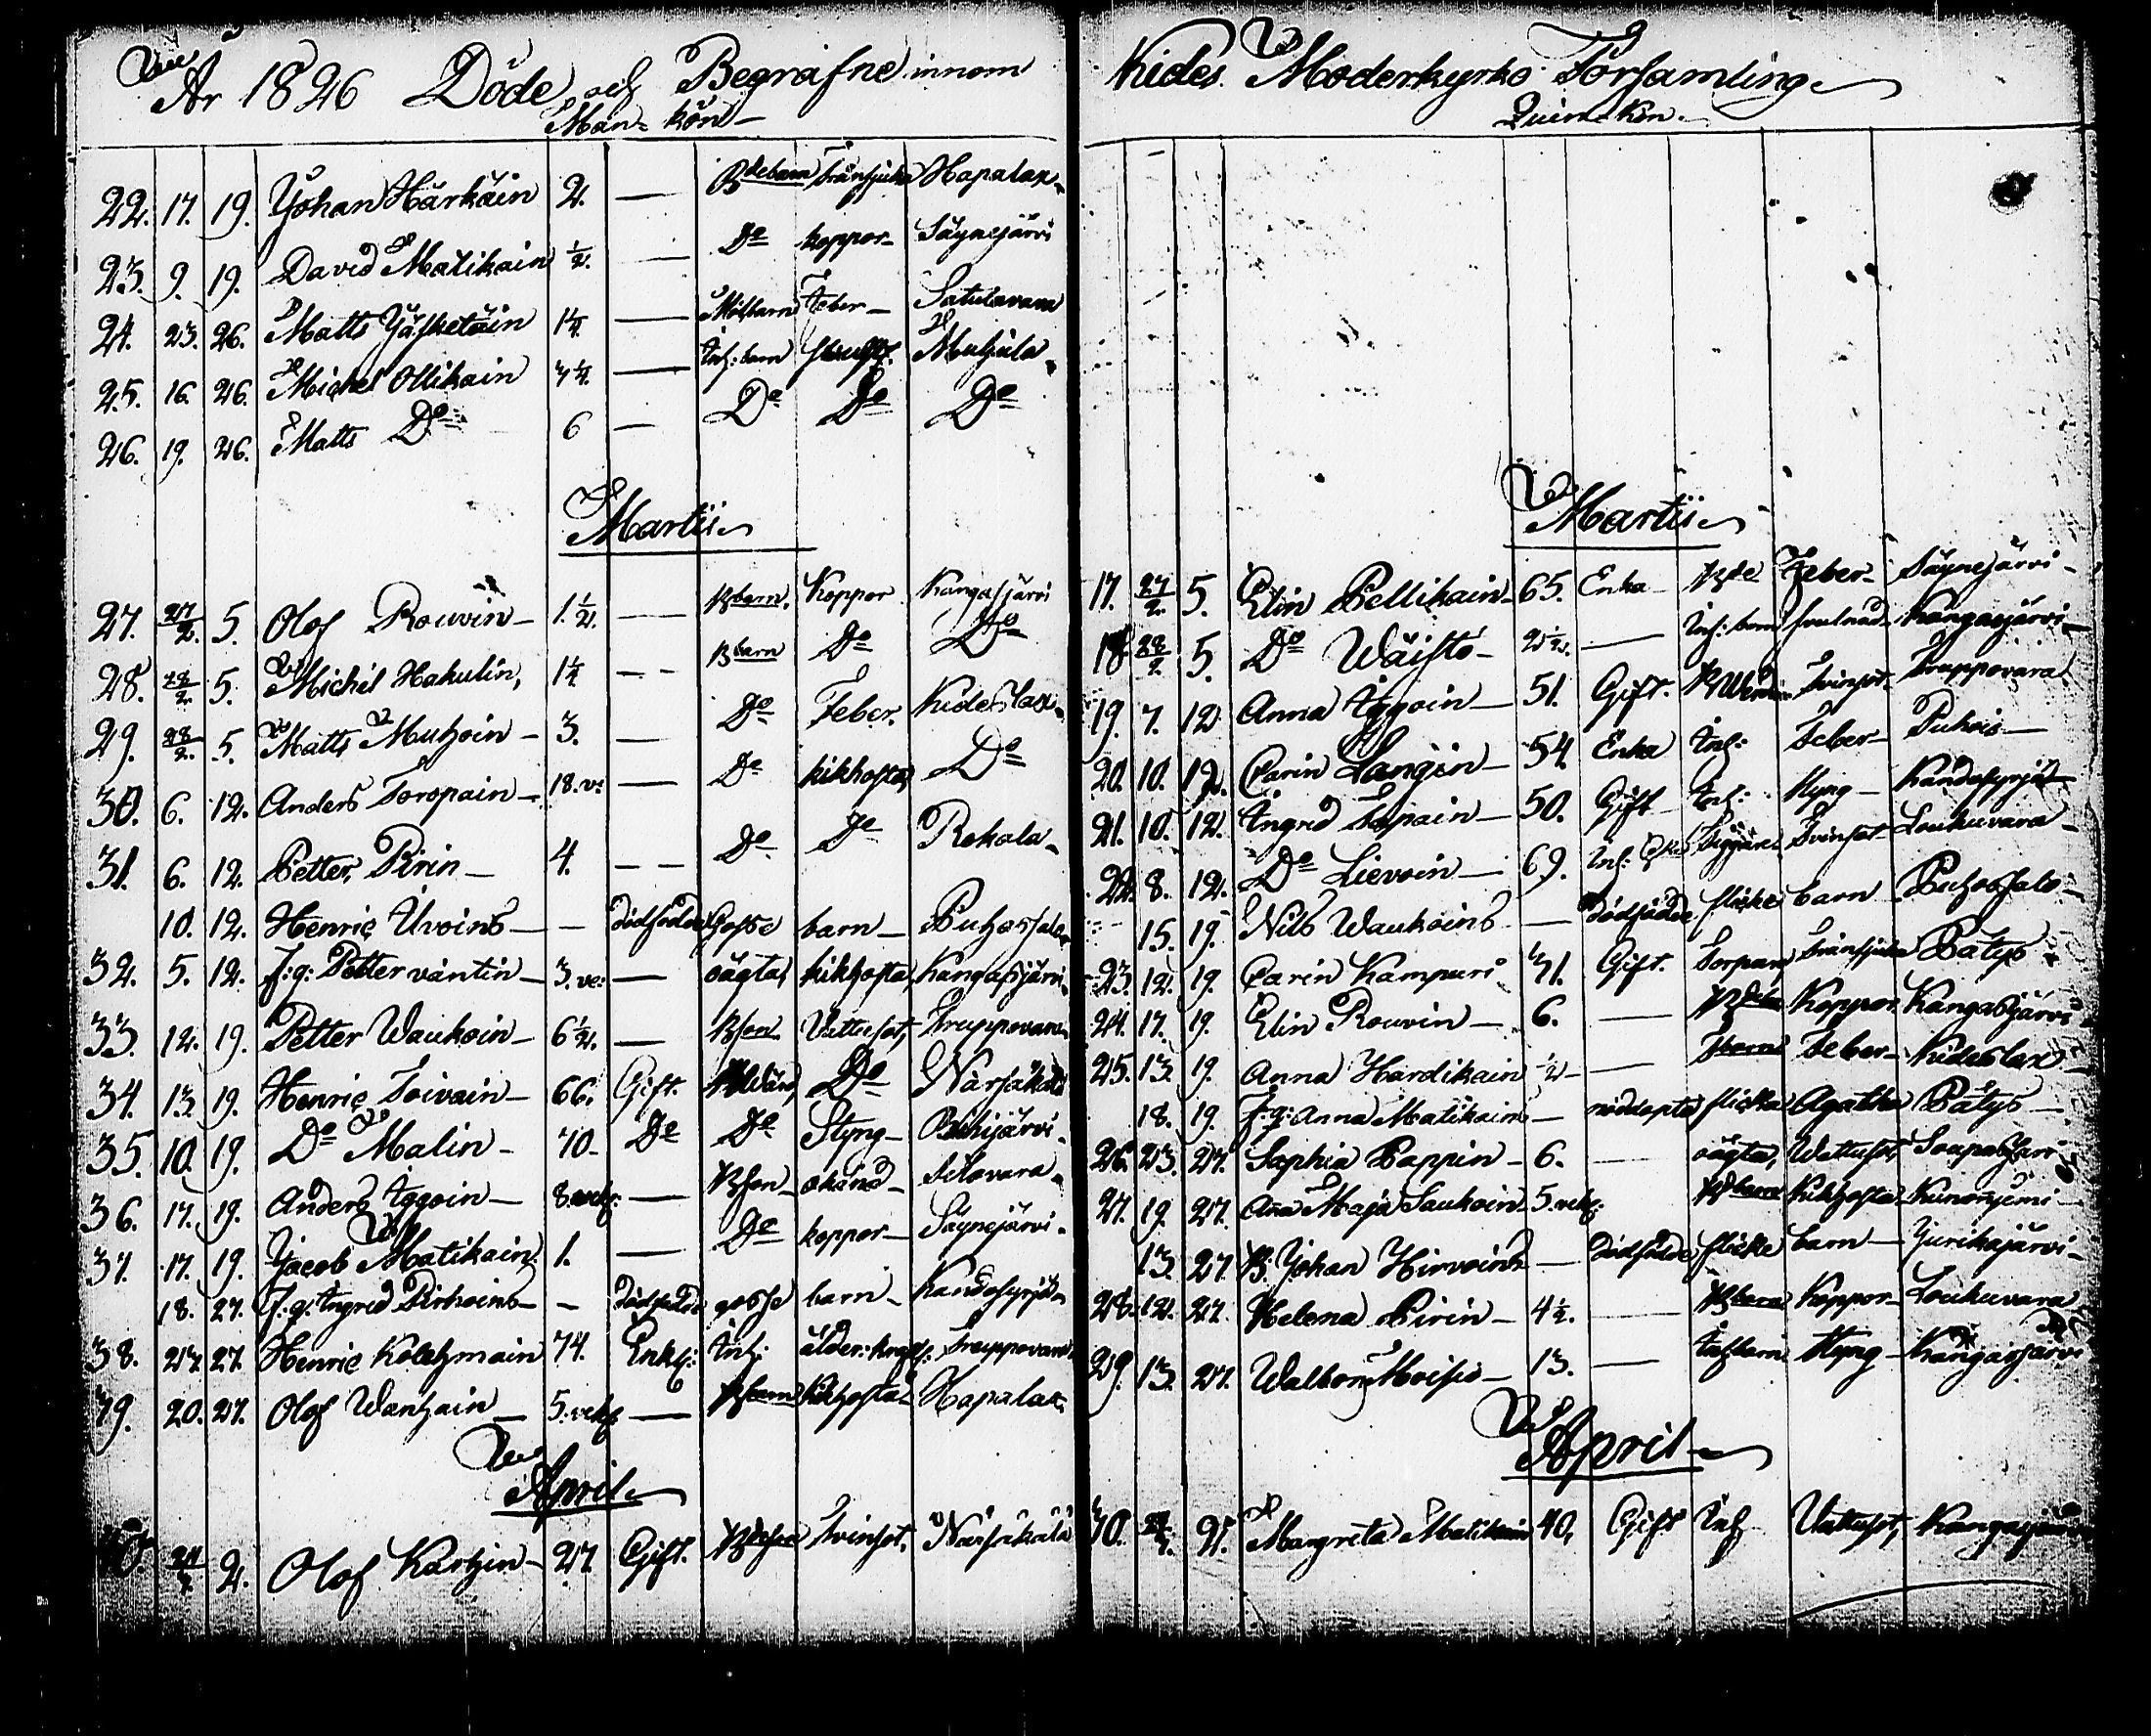 År 1826 Döde och Begrafne innom
Man-kön
22. 17. 19. Johan Härkäin 2. — Bdebarn bränsjuka Hapalax
23. 9. 19. David Matikain ½. — Do koppor Säynejärvi
24. 23. 26. Matts Jäsketäin 1¼ — feber Satulavara
25. 16. 26. Michel Ollikain — Inh: barn Muhjula
26. 19. 26. Matts Do 6 — Do Do Do
Martii
27. 27/2. 5. Olof Rouvin 1½. — Bbarn Koppor Kangasjärvi
28. 28/2. 5. Michel Hakulin, 1¼ — Bbarn Do Do
29. 28/2. 5. Matts Muhoin 3. — Do Feber. Kideslax
30. 6. 12. Anders Toropain 18. v: — Do kikhosta Do
31. 6. 12. Petter Pirin 4. — Do Do Rokala
10. 12. Henric Uvoins — dödfödde Gosse barn Puhossalo
32. 5. 12. f: q: Petter väntin 3. ve: — oägta, kikhosta, Kangasjärvi
33. 12. 19. Petter Waukoin 6½. — Bson Vattusot, Truppovara
34. 13. 19. Henric Toivain 66. Gift. Do Närsäkälä
35. 10. 19. Do Malin 70. Do Do Styng
36. 17. 19. Anders Iggoin 8. vek: — Bson okänd
37. 17. 19. Jacob Matikain 1. — Do koppor Säynejärvi
18. 27. f: q: Ingrid Pirhoins — dödfödde gosse barn Kandosyrjä
38. 27. Henric Kolehmain 74. Enkl: Inh: ålder: Truppovara
39. 20. 27. Olof Wanhain 5. vek — Bbarn Kikhosta Hapalax
April
40. 2. Olof Karhin 27 Gift. Tvinsot. Närsäkälä
Kides Moderkyrko Församling
Quin-Kön
Martii
17. 27/2. 5. Elin Pellikain 65. Enka Bde Feber Säynejärvi
18. 28/2 5. Do Wäistö — Inh: barn Kangasjärvi
19. 7. 12 Anna Iggoin 51. Gift. Tvinsot. Truppovara
20. 10. 12. Carin Langin 54. Enka Inh: feber Puhois
21. 10. 12. Ingrid Sapain 50. Gift Inh: Styng Kandosyrjä
22. 8. 12. Do Lievoin 69. Inh: Tiggare Tvinsot Loukuvara
15. 19. Nils Waukoins — dödfödde flicke barn Puhossalo
23. 12. 19. Carin Kampuri 71. Gift. Torpare bränsjuka Pätys
24. 17. 19. Elin Rouvin 6. — Koppor Kangasjärvi
25. 13. 19. Anna Hardikain ½ — feber Kideslax
18. 19. f: q: Anna Matikains — nöddöpte flicka Agatha Pätys
26. 23. 27. Sophia Pappin 6. — oägta, Wattusot,
27. 19. 27. Ana Maja Saukoin 5. vek: — Bbarn Kikhosta Kunonjemi
13. 27. B: Johan Hirvoins — dödfödde flicke barn Jurikajärvi
28. 12. 27. Helena Pirin 4½. — Bbarn Koppor Loukuvara
29. 13. 27. Walborg Moisio 13. — Inhbarn Styng Kangasjärvi
April
30. Margreta Matikain 40, Gift Inh Vattusot, Kangasjärvi